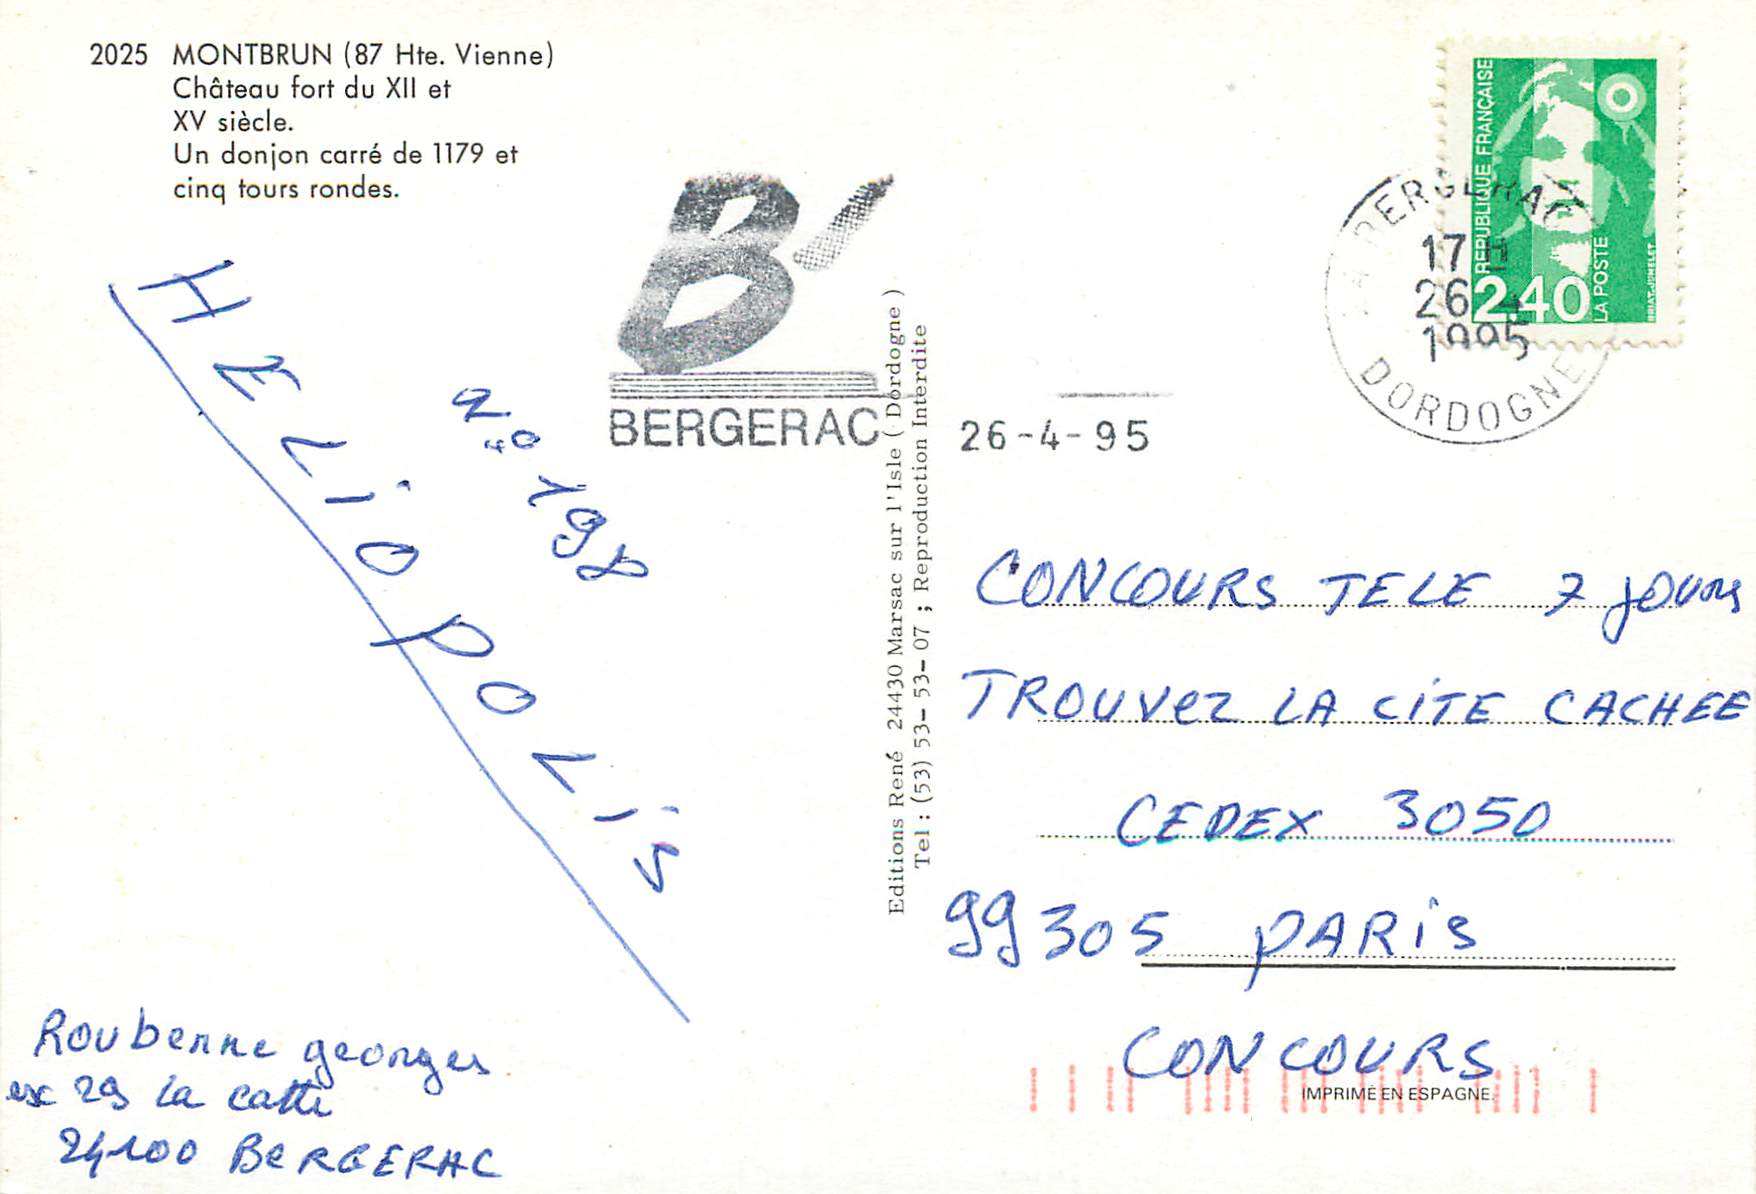 2025 MONTBRUN (87 Hte. Vienne)
Château fort du XII et
XV siècle.
Un donjon carré de 1179 et
cinq tours rondes.
B'
BERGERAC
26-4-95
REPUBLIQUE FRANÇAISE
2,40
LA POSTE
BRIAT-JUMELET
BERGERAC
17H
26 4
1995
DORDOGNE
HELIOPOLIS
no 198
Editions René 24430 Marsac sur l'Isle (Dordogne)
Tel : (53) 53-53-53-07 ; Reproduction Interdite
CONCOURS TELE 7 jours
TROUVEZ LA CITE CACHEE
CEDEX 3050
99305 PARIS
CONCOURS
IMPRIMÉ EN ESPAGNE.
Roubenne georges
29 la catte
24100 BERGERAC